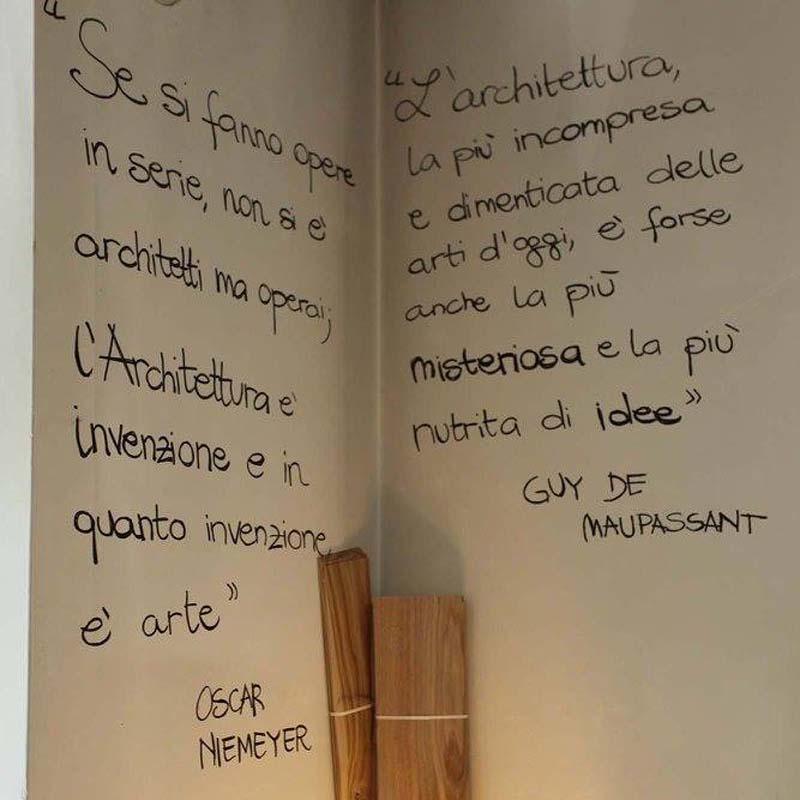 “Se si fanno opere
in serie, non si è
architetti ma operai;
l'Architettura è
invenzione e in
quanto invenzione
è arte”
OSCAR
NIEMEYER
“L'architettura,
la più incompresa
e dimenticata delle
arti d'oggi, è forse
anche la più
misteriosa e la più
nutrita di idee”
GUY DE
MAUPASSANT